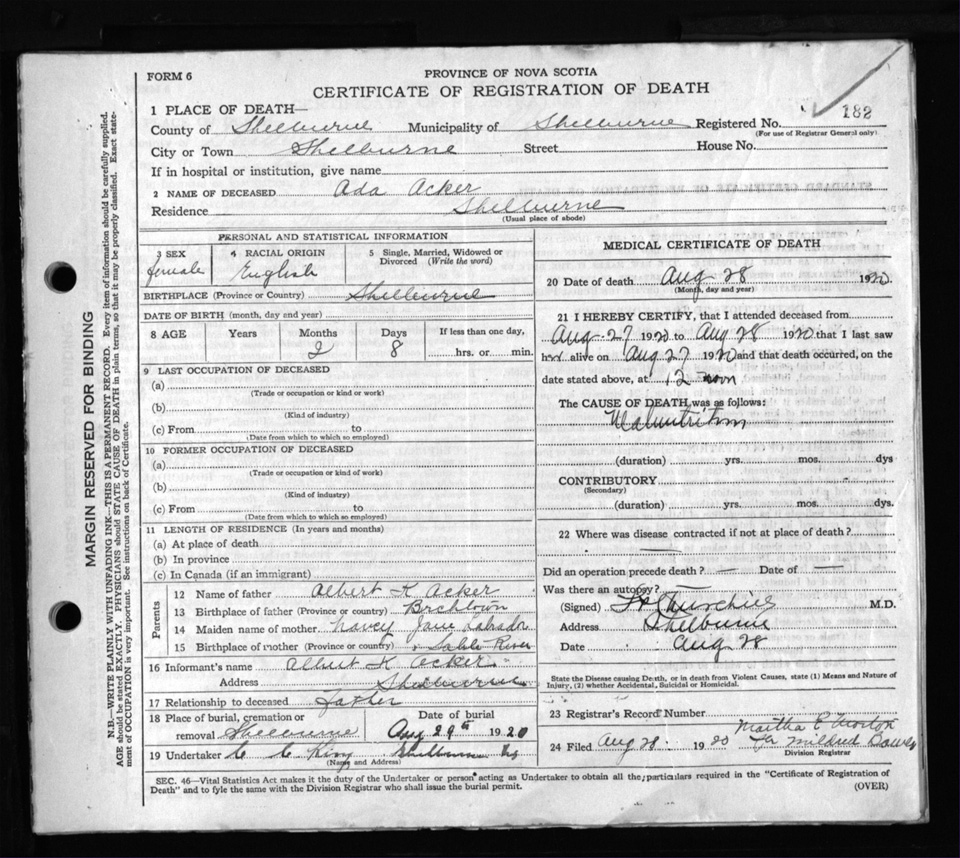 FORM 6
PROVINCE OF NOVA SCOTIA
CERTIFICATE OF REGISTRATION OF DEATH
182
1 PLACE OF DEATH—
County of Shelburne Municipality of Shelburne Registered No.
(For use of Registrar General only)
City or Town Shelburne Street House No.
If in hospital or institution, give name
2 NAME OF DECEASED Ada Acker
Residence Shelburne
(Usual place of abode)
PERSONAL AND STATISTICAL INFORMATION
3 SEX female
4 RACIAL ORIGIN English
5 Single, Married, Widowed or Divorced (Write the word)
BIRTHPLACE (Province or Country) Shelburne
DATE OF BIRTH (month, day and year)
8 AGE Years Months Days If less than one day,
2 8 hrs. or min.
9 LAST OCCUPATION OF DECEASED
(a)
(Trade or occupation or kind or work)
(b)
(Kind of industry)
(c) From to
(Date from which to which so employed)
10 FORMER OCCUPATION OF DECEASED
(a)
(Trade or occupation or kind of work)
(b)
(Kind of industry)
(c) From to
(Date from which to which so employed)
11 LENGTH OF RESIDENCE (In years and months)
(a) At place of death
(b) In province
(c) In Canada (if an immigrant)
Parents
12 Name of father Albert K Acker
13 Birthplace of father (Province or country) Brchtown
14 Maiden name of mother Nancy Jane Labrador
15 Birthplace of mother (Province or country) Sable River
16 Informant's name Albert K Acker
Address Shelburne
17 Relationship to deceased father
18 Place of burial, cremation or removal Shelburne Date of burial Aug 29th 1920
19 Undertaker C C King Shelburne NS
(Name and Address)
MEDICAL CERTIFICATE OF DEATH
20 Date of death Aug 28 1920
(Month, day and year)
21 I HEREBY CERTIFY, that I attended deceased from
Aug 27 1920 to Aug 28 1920 that I last saw
her alive on Aug 27 1920 and that death occurred, on the
date stated above, at 12 noon
The CAUSE OF DEATH was as follows:
Malnutrition
(duration) yrs. mos. dys
CONTRIBUTORY
(Secondary)
(duration) yrs. mos. dys.
22 Where was disease contracted if not at place of death?
Did an operation precede death? — Date of —
Was there an autopsy? —
(Signed) Churchill M.D.
Address Shelburne
Date Aug 28
State the Disease causing Death, or in death from Violent Causes, state (1) Means and Nature of
Injury, (2) whether Accidental, Suicidal or Homicidal.
23 Registrar's Record Number
24 Filed Aug 28 1920 Martha E Morton
for Mildred Bower
Division Registrar
SEC. 46—Vital Statistics Act makes it the duty of the Undertaker or person acting as Undertaker to obtain all the particulars required in the "Certificate of Registration of
Death" and to fyle the same with the Division Registrar who shall issue the burial permit.
(OVER)
MARGIN RESERVED FOR BINDING
N.B.—WRITE PLAINLY WITH UNFADING INK—THIS IS A PERMANENT RECORD. Every item of information should be carefully supplied.
AGE should be stated EXACTLY. PHYSICIANS should STATE CAUSE OF DEATH in plain terms, so that it may be properly classified. Exact state-
ment of OCCUPATION is very important. See instructions on back of Certificate.